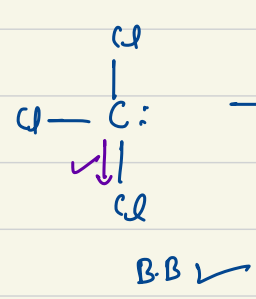 Cl
Cl — C :
Cl
B.B ✓